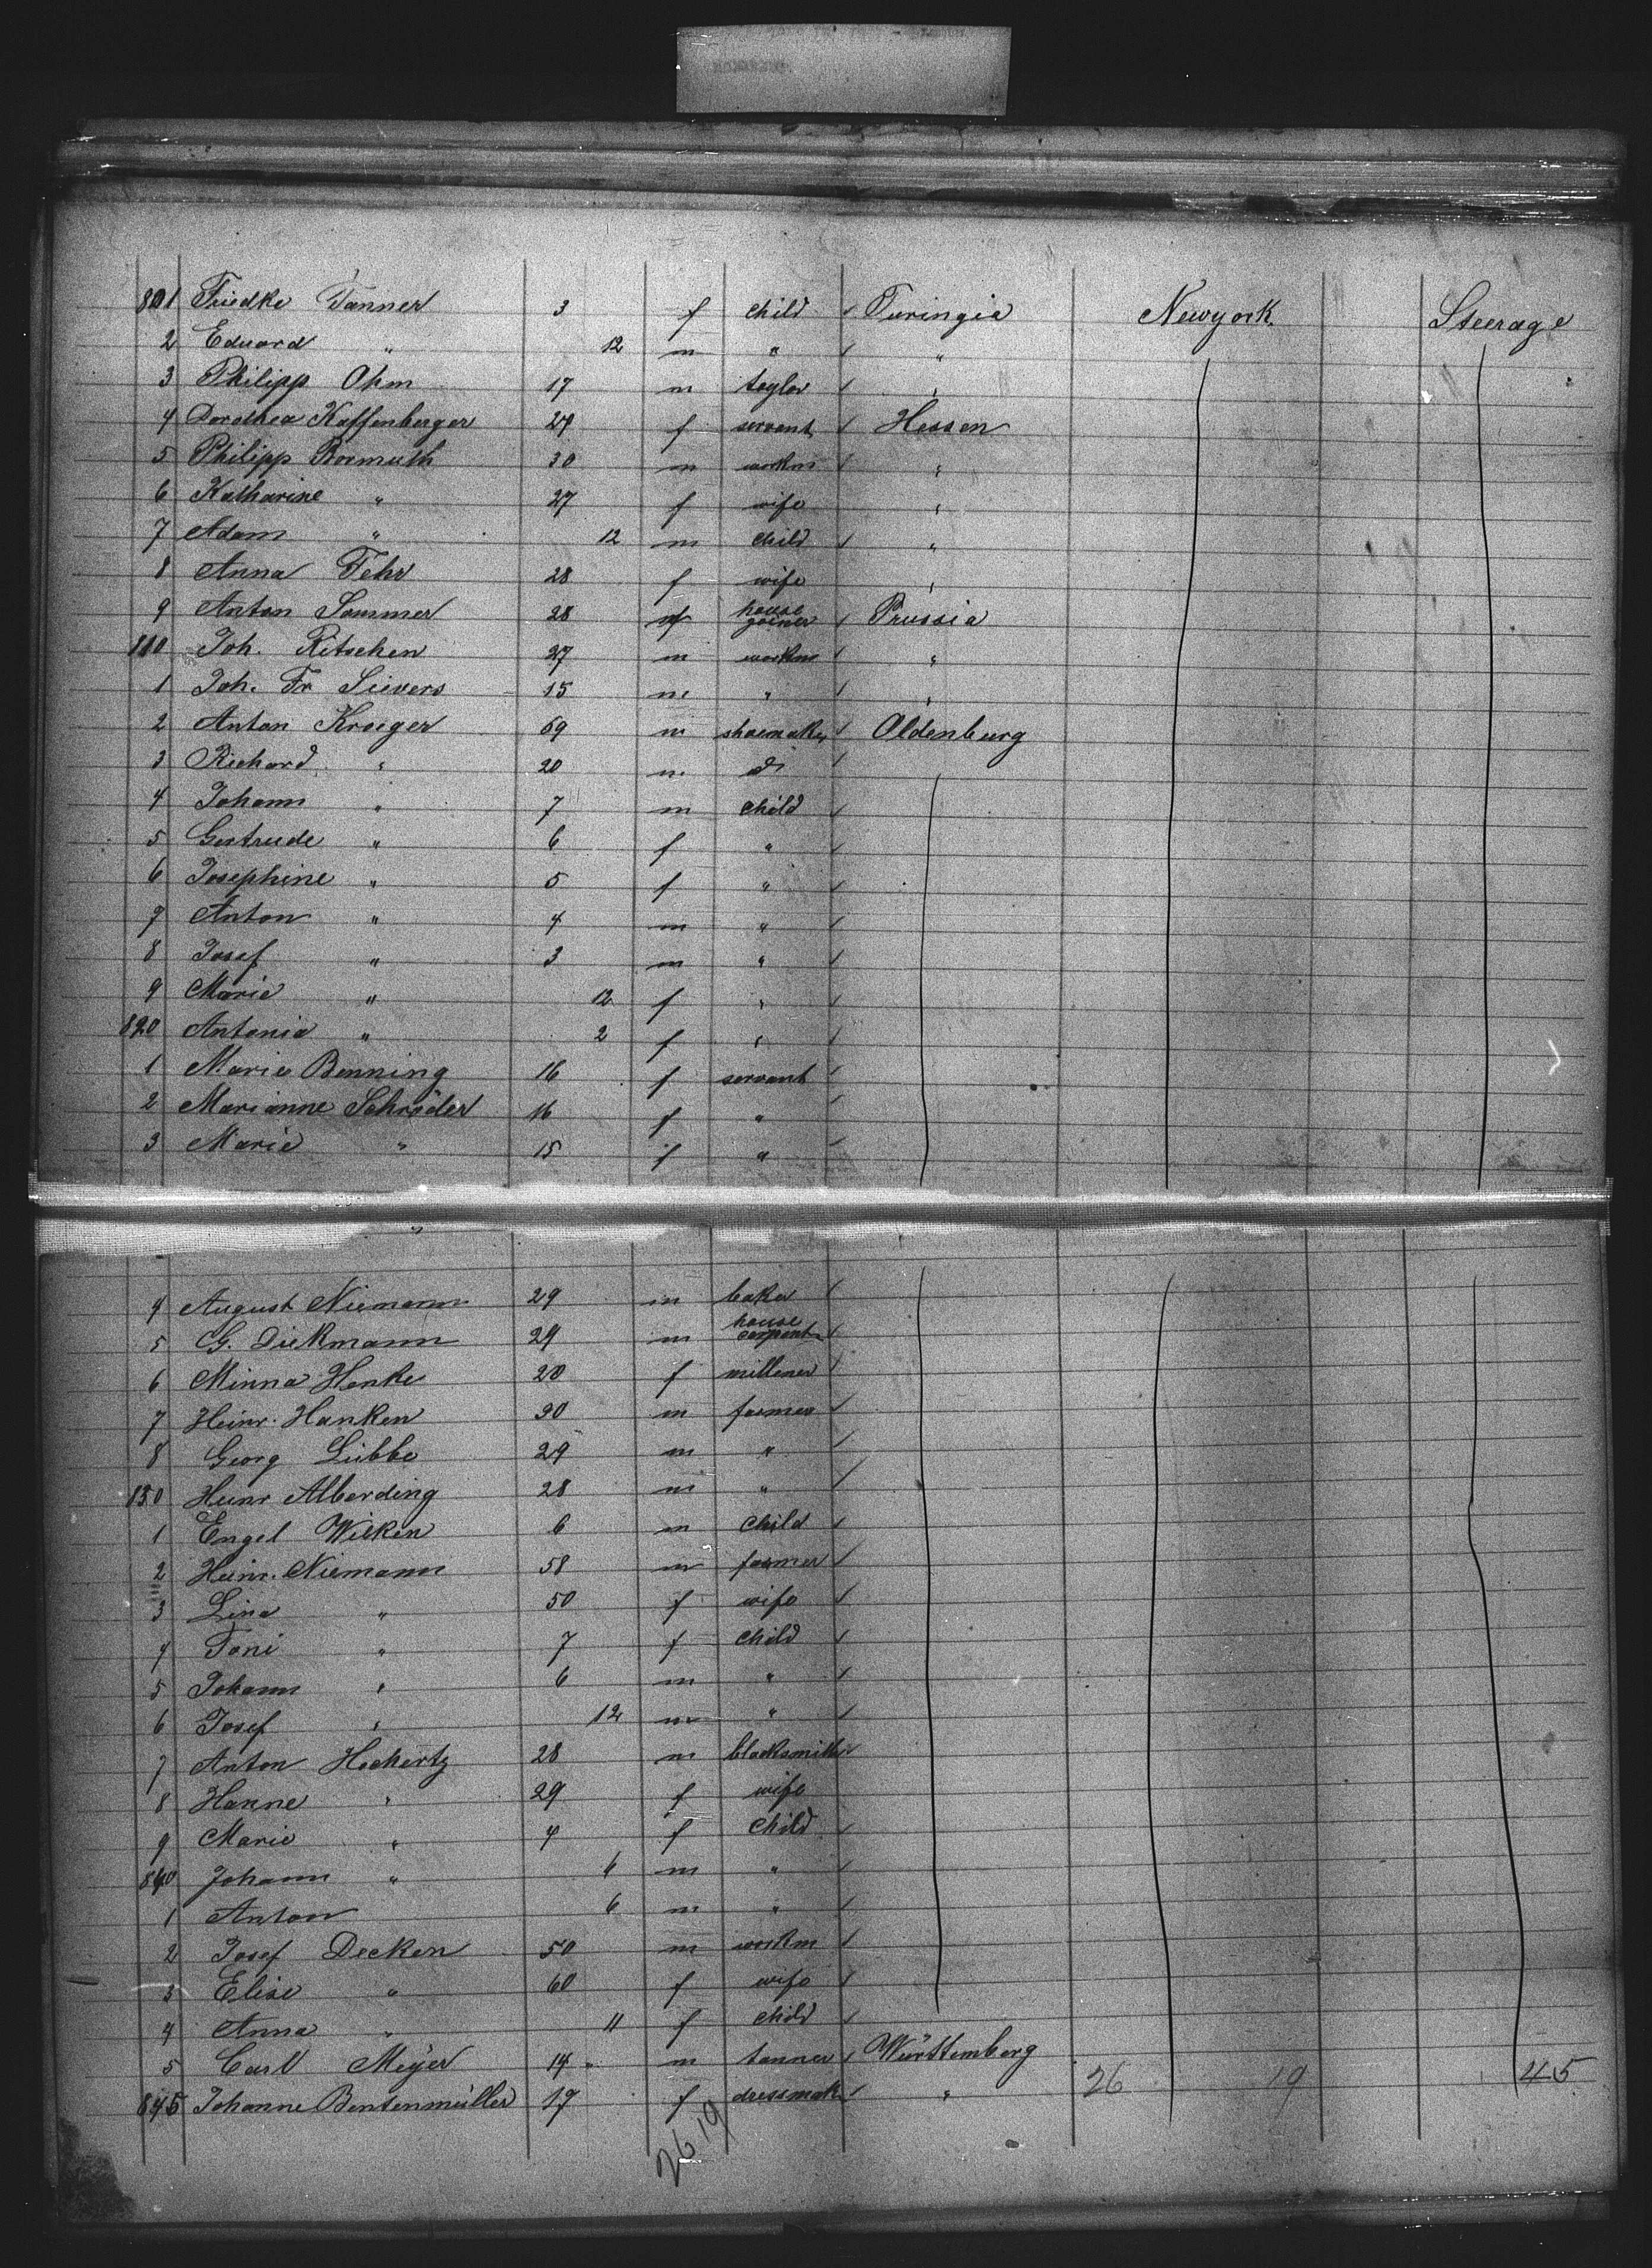 801 Friedke Tanner 3 f child / Turingia Newyork. Steerage
2 Eduard " 12 m " / "
3 Philipp Ohm 17 m taylor / "
4 Dorothea Kaffenberger 29 f servant / Hessen
5 Philipp Rosmuth 30 m workm / "
6 Katharine " 27 f wife "
7 Adam " 12 m child / "
8 Anna Fehr 28 f wife "
9 Anton Sommer 28 m house goiner / Prussia
810 Joh. Ritschen 27 m workm / "
1 Joh. Fr Sievers 15 m " / "
2 Anton Kroeger 69 m shoemaker / Oldenburg
3 Richard " 20 m do /
4 Johann " 7 m child /
5 Gertrude " 6 f " /
6 Josephine " 5 f " /
7 Anton " 4 m " /
8 Josef " 3 m " /
9 Marie " 12 f " /
820 Antonia " 2 f " /
1 Maria Benning 16 f servant /
2 Marianne Schröder 16 f " /
3 Marie " 15 f " /
4 August Niemann 29 m baker /
5 G. Diekmann 29 m house carpent /
6 Minna Henke 20 f millener /
7 Heinr. Hanken 30 m farmer /
8 Georg Lübbe 29 m " /
830 Heinr Alberding 28 m " /
1 Engel Wilken 6 m child /
2 Heinr. Niemann 58 m farmer /
3 Lina " 50 f wife /
4 Toni " 7 f child /
5 Johann " 6 m " /
6 Josef " 12 m " /
7 Anton Hochertz 28 m blacksmith /
8 Hanne " 29 f wife
9 Marie " 4 f child /
840 Johann " 6 m " /
1 Anton 6 m " /
2 Josef Decken 50 m workm /
3 Elise " 60 f wife /
4 Anna " 11 f child /
5 Carl Meyer 14 m tanner / Württemberg
845 Johanne Bentenmüller 17 f dressmak / " 26 19 45
26 19